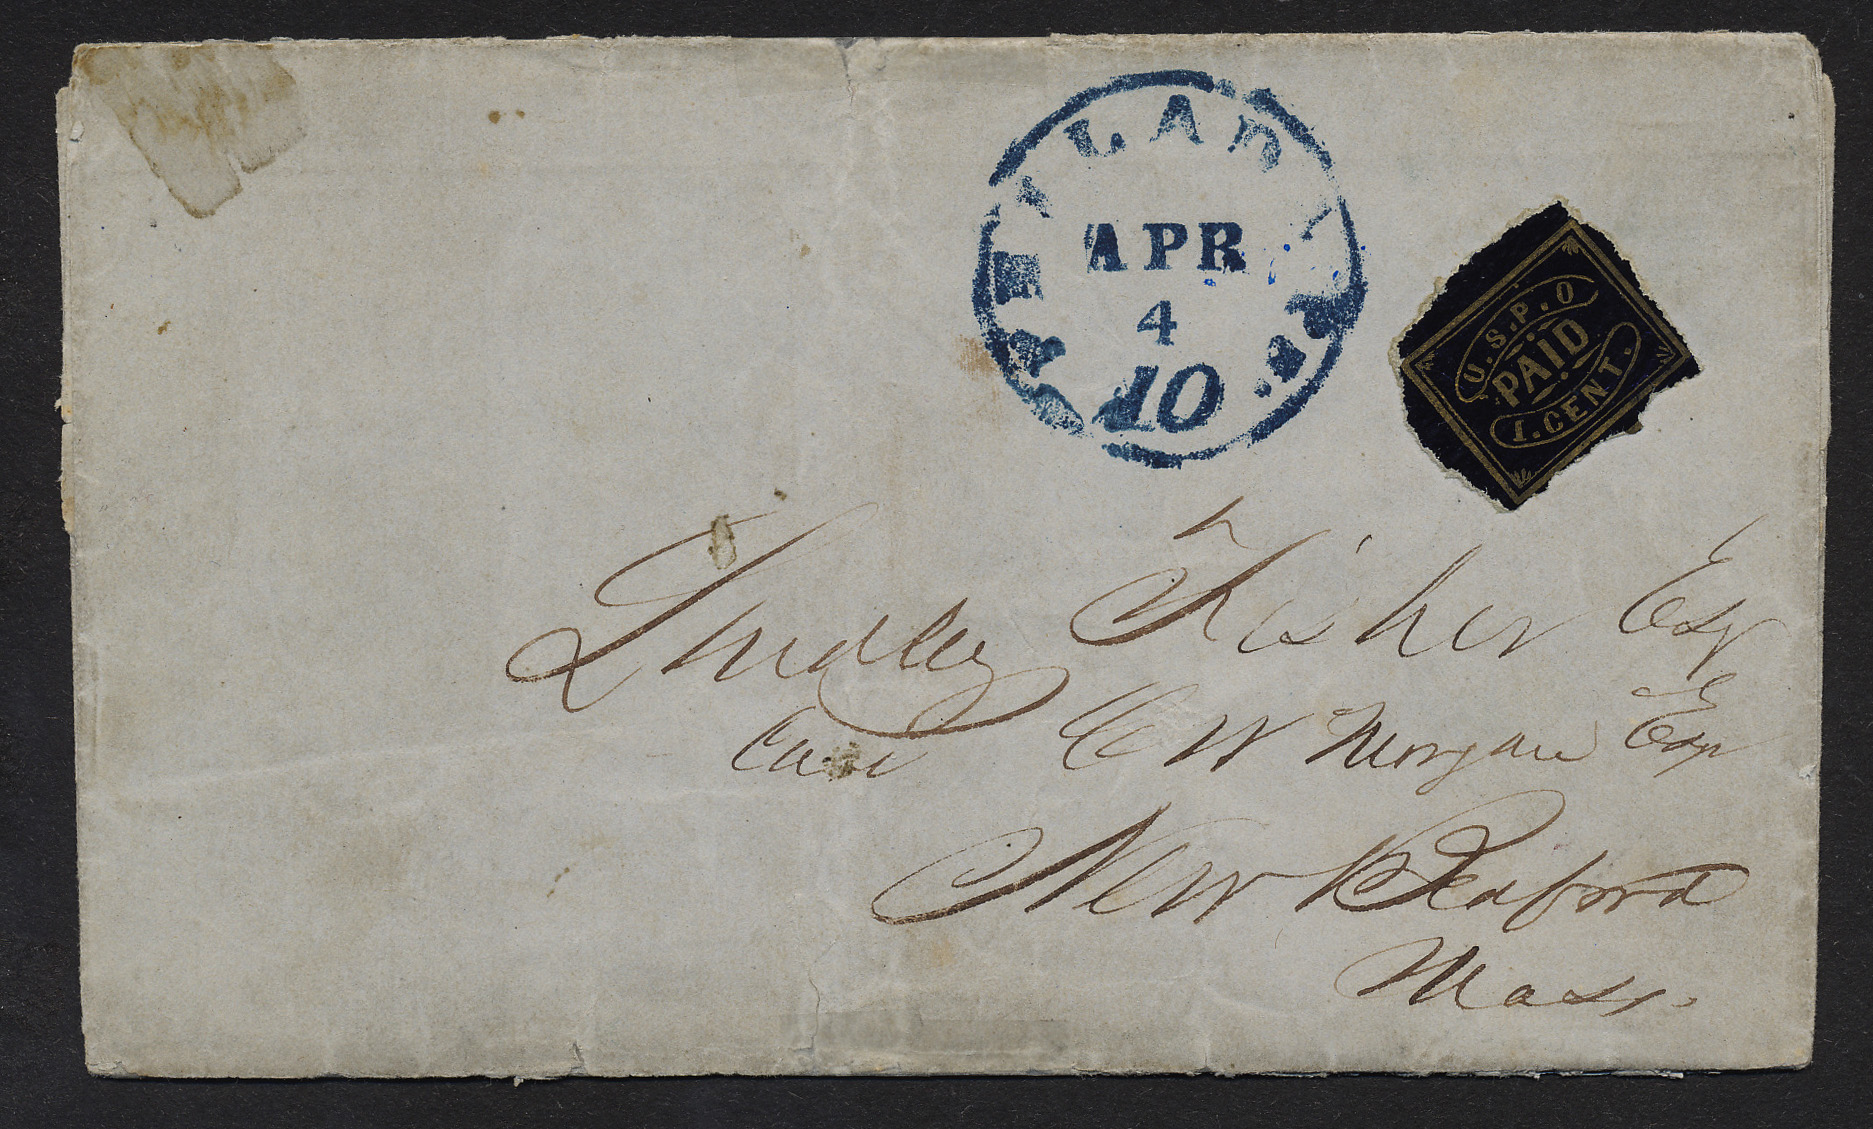 PHILADA Pa.
APR
4
10
U.S.P.O
PAID
1.CENT.
Lindley Fisher Esq
Care C W Morgan Esq
New Bedford
Mass.